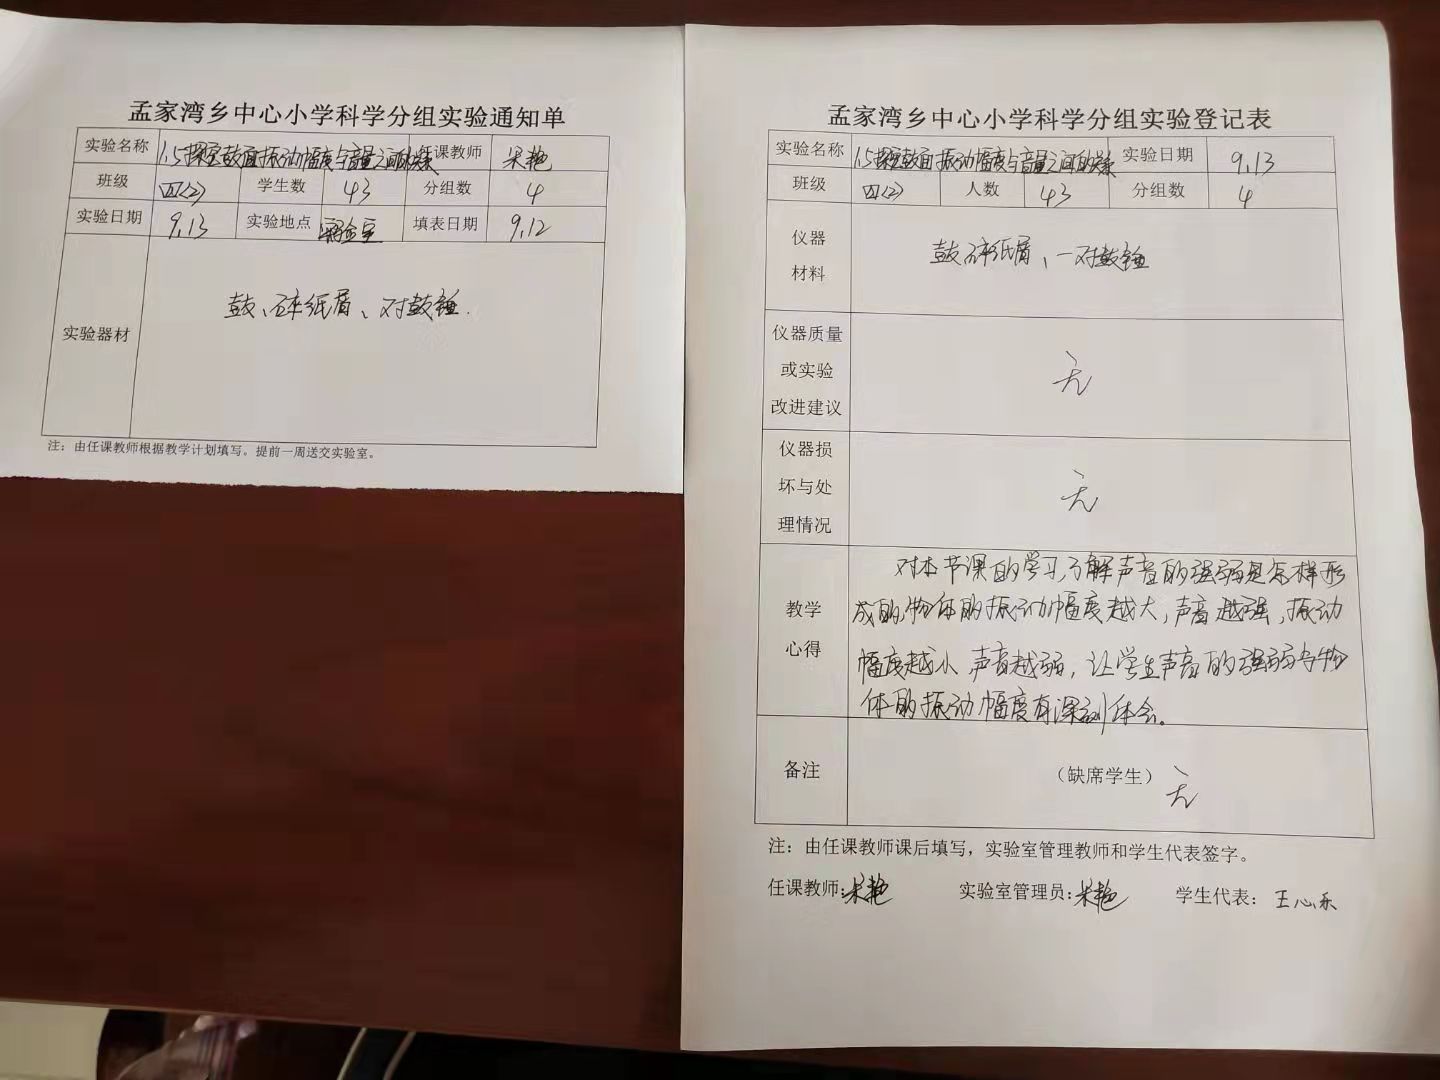 孟家湾乡中心小学科学分组实验通知单
实验名称 1.5探究鼓面振动幅度与音量之间的关系 任课教师
班级 四(2) 学生数 43 分组数 4
实验日期 9.13 实验地点 实验室 填表日期 9.12
实验器材 鼓、碎纸屑、对鼓锤.
注：由任课教师根据教学计划填写。提前一周送交实验室。
孟家湾乡中心小学科学分组实验登记表
实验名称 1.5探究鼓面振动幅度与音量之间的关系 实验日期 9.13
班级 四(2) 人数 43 分组数 4
仪器
材料
鼓、碎纸屑、一对鼓锤
仪器质量
或实验
改进建议
无
仪器损
坏与处
理情况
无
教学
心得
对本节课的学习,了解声音的强弱是怎样形
成的,物体的振动幅度越大,声音越强,振动
幅度越小,声音越弱,让学生声音的强弱与物
体的振动幅度有深刻体会。
备注 （缺席学生） 无
注：由任课教师课后填写，实验室管理教师和学生代表签字。
任课教师: 实验室管理员: 学生代表： 王心乐